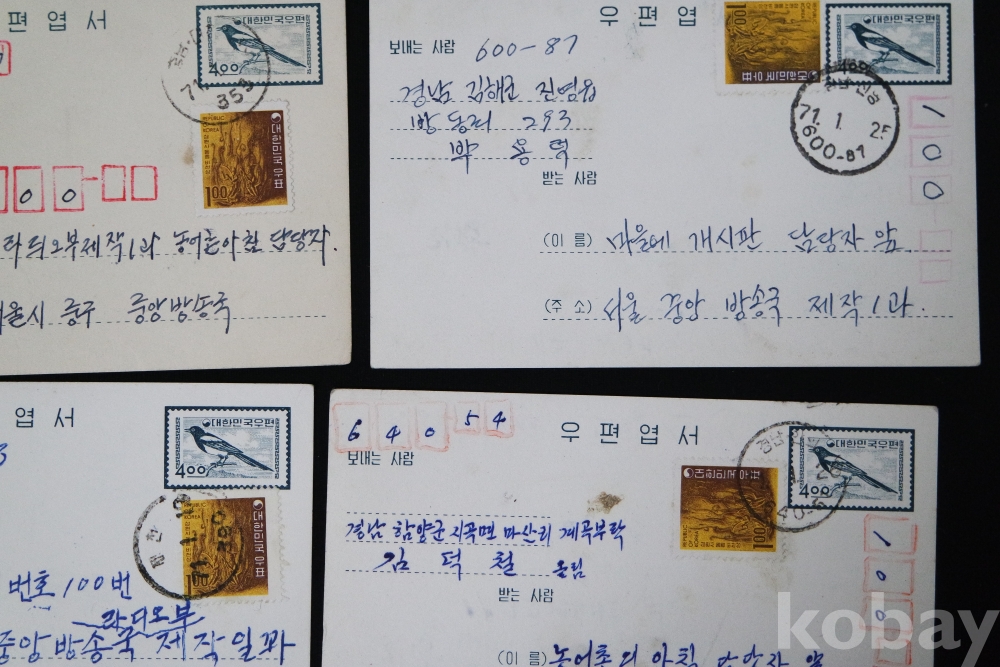 편엽서
대한민국우편
4.00
71.
359
REPUBLIC OF KOREA
대한민국우표
1.00
0 0
라듸오부제작1과 농어촌아침 담당자.
서울시 중구 중앙방송국
우편엽
보내는 사람 600-87
경남 김해군 진영읍
방동리 293
박용덕
받는 사람
1.00
대한민국우표
71. 1. 25
600-87
1 0 0
(이 름) 마을에 게시판 담당자 앞
(주 소) 서울 중앙 방송국 제작1과.
엽서
대한민국우편
4.00
71. 1.
대한민국우표
1.00
번호 100번
라디오부
중앙방송국 제작일과
6 4 0 5 4
우편엽서
보내는 사람
대한민국우편
4.00
REPUBLIC OF KOREA
대한민국우표
1.00
경남 함양군 지곡면 마산리 계곡부락
김덕철 올림
받는 사람
1 0 0
(이 름) 농어촌의 아침 담당자 앞
kobay